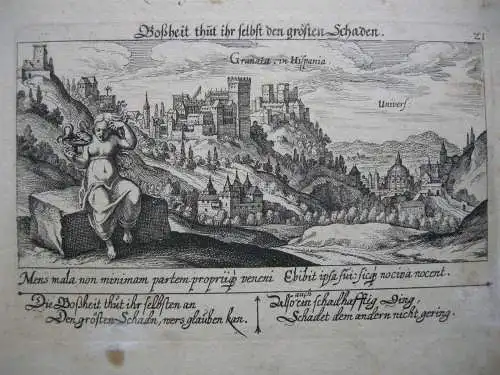 Boßheit thüt ihr selbst den grösten Schaden.
21
Granata, in Hispania
Univers.
Mens mala non minimam partem propriiq; veneni Ebibit ipsa sui: sicq; nociva nocent.
Die Boßheit thüt ihr selbsten an
Den grösten Schadn, wers glauben kan.
Also auch ein schadhafftig Ding,
Schadet dem andern nicht gering.